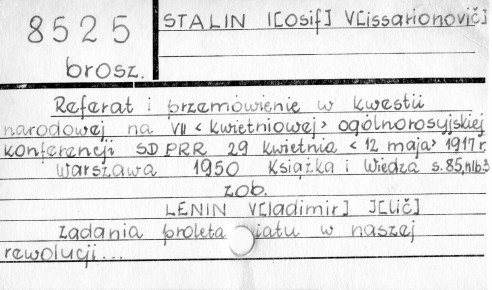 8525
brosz.
STALIN I[osif] V[issarionovič]
Referat i przemówienie w kwestii
narodowej na VII <kwietniowej> ogólnorosyjskiej
konferencji SDPRR 29 kwietnia <12 maja> 1917 r.
Warszawa 1950 Książka i Wiedza s. 85, nlb. 3
zob.
LENIN V[ladimir] I[lič]
Zadania proleta iatu w naszej
rewolucji...